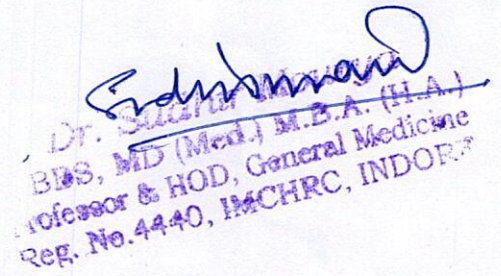 Dr. Sudhir
BBS, MD (Med.) M.B.A. (H.A.)
rofessor & HOD, General Medicine
Reg. No.4440, IMCHRC, INDORE